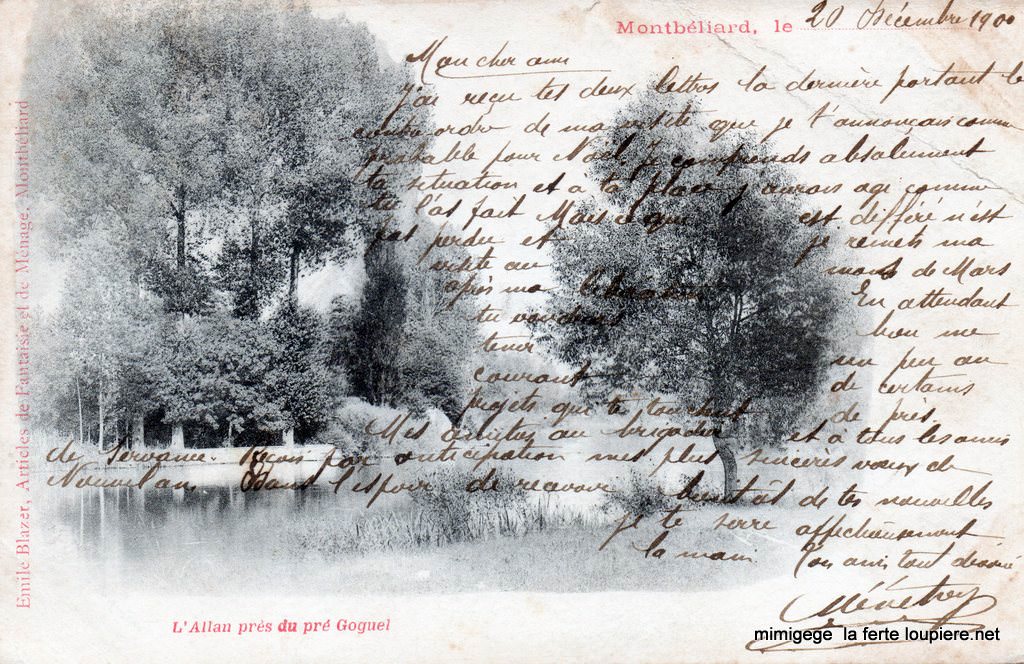 Montbéliard, le 20 Décembre 1900
Mon cher ami
J'ai reçu tes deux lettres la dernière portant le
contre ordre de ma visite que je t'annonçais comme
probable pour Noël. Je comprends absolument
ta situation et à ta place j'aurais agi comme
tu l'as fait Mais ce que est différé n'est
pas perdu et je remets ma
visite au mois de Mars
après ma libération En attendant
tu voudras bon me
tenir un peu au
courant de certains
projets que te touchent de près.
Mes amitiés au brigadier et à tous les amis
de Servance. Reçois par anticipation mes plus sincères voeux de
Nouvel an. Dans l'espoir de recevoir bientôt de tes nouvelles
je te serre affectueusement
la main. Ton ami tout dévoué
Emile Blazer, Articles de Fantaisie et de Ménage, Montbéliard
L'Allan près du pré Goguel
mimigege la ferte loupiere.net